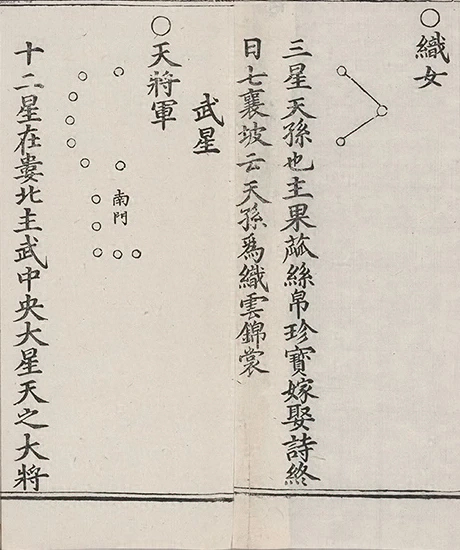 ○織女
三星天孫也主果蓏絲帛珍寶嫁娶詩終
日七襄坡云天孫爲織雲錦裳
武星
○天將軍
南門
十二星在婁北主武中央大星天之大將